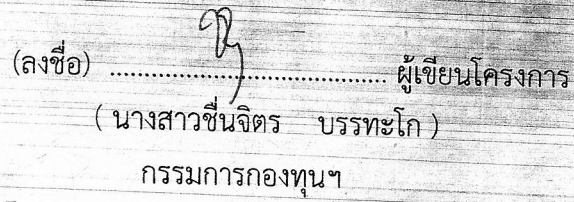 (ลงชื่อ) ................................................ ผู้เขียนโครงการ
( นางสาวชื่นจิตร บรรทะโก )
กรรมการกองทุนฯ